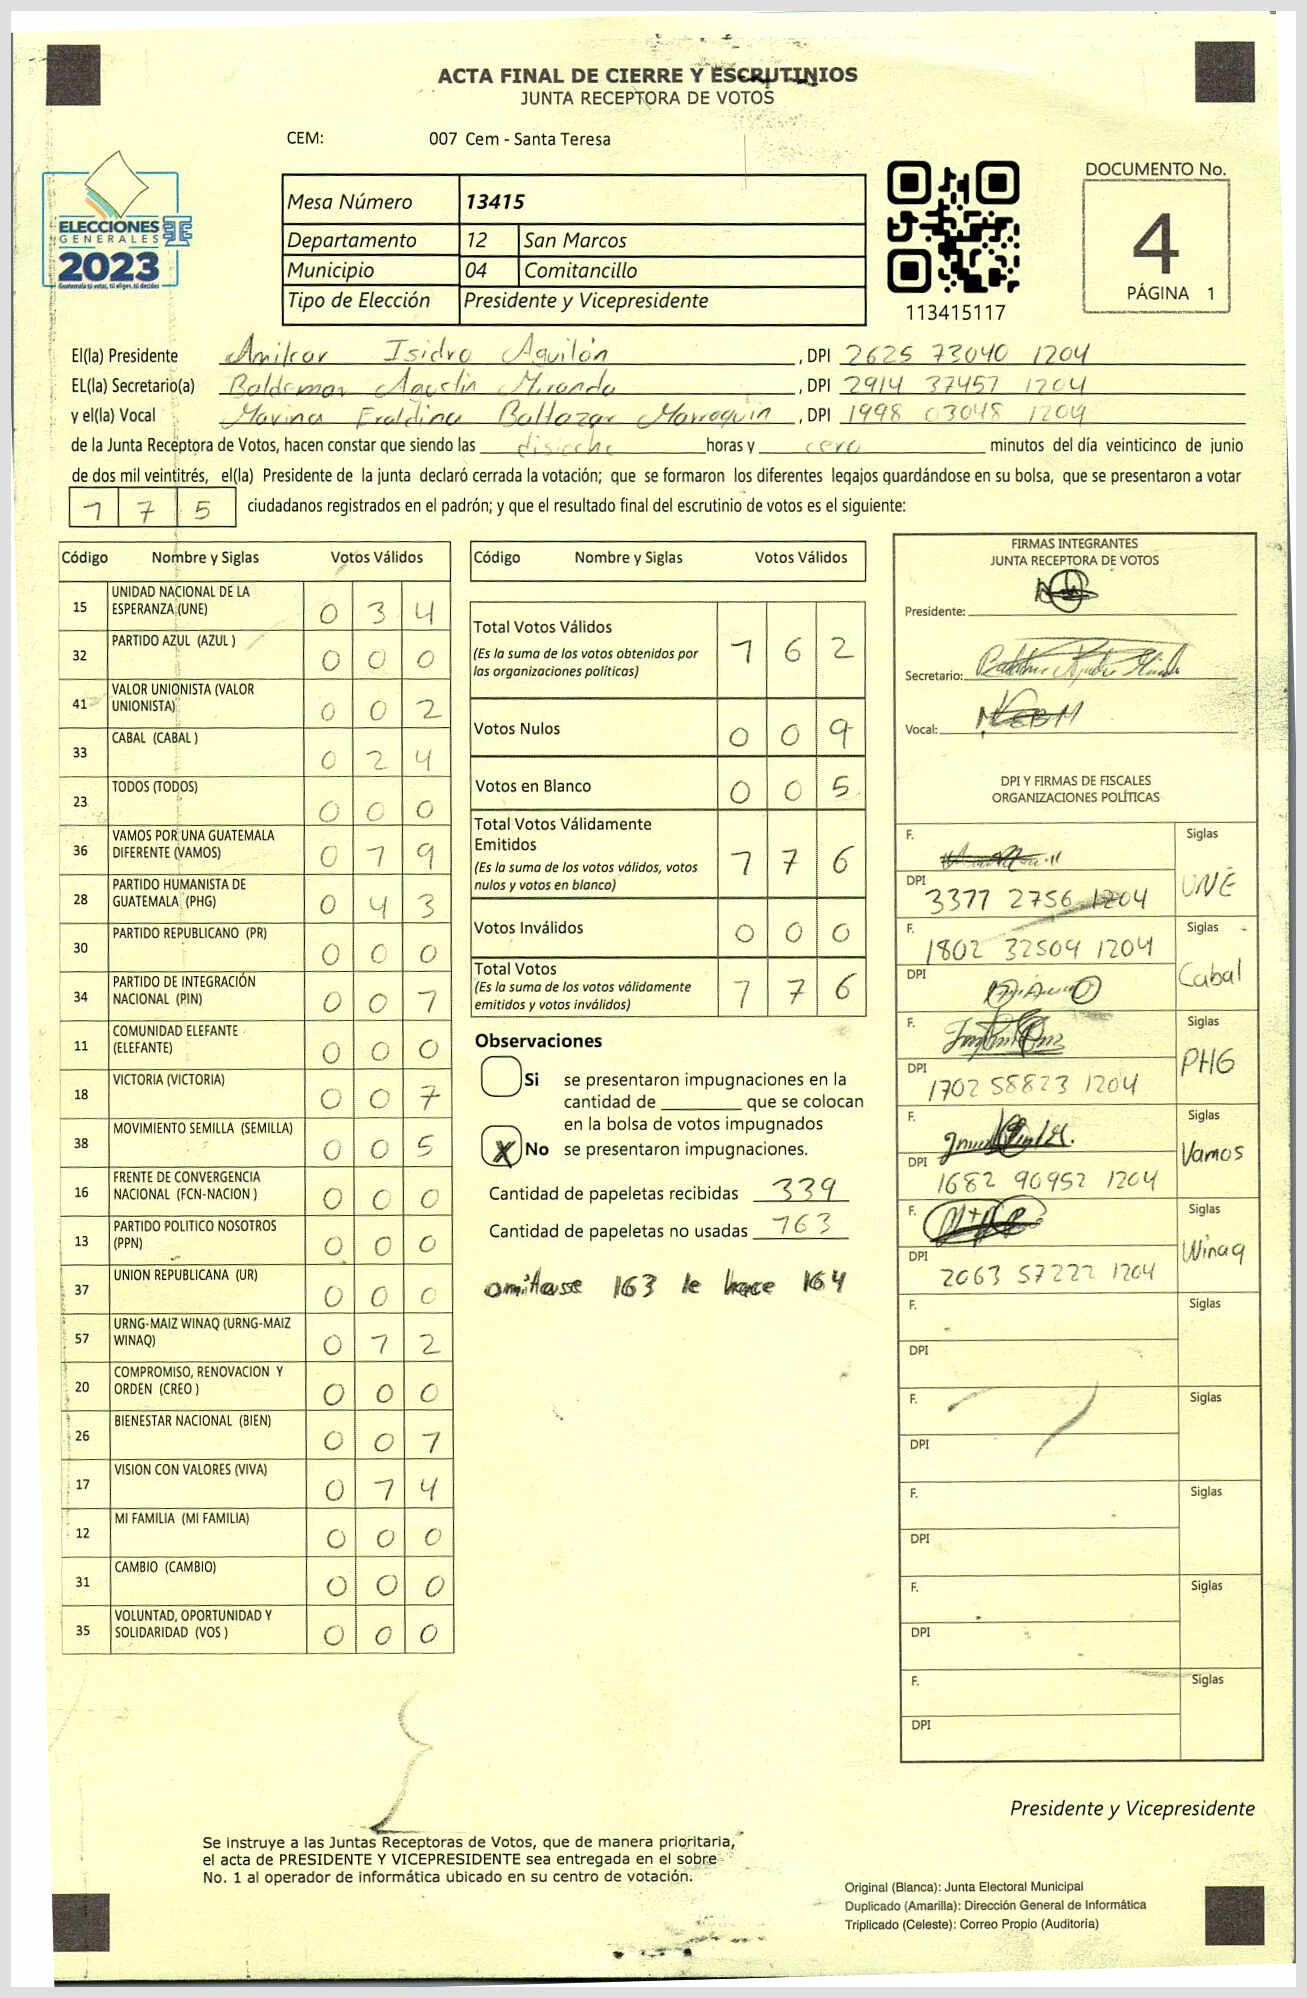 ACTA FINAL DE CIERRE Y ESCRUTINIOS
JUNTA RECEPTORA DE VOTOS
CEM: 007 Cem - Santa Teresa
ELECCIONES
GENERALES
2023
Guatemala tú votas, tú eliges, tú decides
Mesa Número 13415
Departamento 12 San Marcos
Municipio 04 Comitancillo
Tipo de Elección Presidente y Vicepresidente
113415117
DOCUMENTO No.
4
PÁGINA 1
El(la) Presidente Amilcar Isidro Aguilón, DPI 2625 73040 1204
EL(la) Secretario(a) Baldemar Agustin Miranda, DPI 2914 37457 1204
y el(la) Vocal Marina Eraldina Baltazar Marroquin, DPI 1998 03048 1204
de la Junta Receptora de Votos, hacen constar que siendo las dieciocho horas y cero minutos del día veinticinco de junio
de dos mil veintitrés, el(la) Presidente de la junta declaró cerrada la votación; que se formaron los diferentes legajos guardándose en su bolsa, que se presentaron a votar
1 7 5 ciudadanos registrados en el padrón; y que el resultado final del escrutinio de votos es el siguiente:
Código Nombre y Siglas Votos Válidos
15 UNIDAD NACIONAL DE LA ESPERANZA (UNE) 0 3 4
32 PARTIDO AZUL (AZUL ) 0 0 0
41 VALOR UNIONISTA (VALOR UNIONISTA) 0 0 2
33 CABAL (CABAL ) 0 2 4
23 TODOS (TODOS) 0 0 0
36 VAMOS POR UNA GUATEMALA DIFERENTE (VAMOS) 0 1 9
28 PARTIDO HUMANISTA DE GUATEMALA (PHG) 0 4 3
30 PARTIDO REPUBLICANO (PR) 0 0 0
34 PARTIDO DE INTEGRACIÓN NACIONAL (PIN) 0 0 1
11 COMUNIDAD ELEFANTE (ELEFANTE) 0 0 0
18 VICTORIA (VICTORIA) 0 0 7
38 MOVIMIENTO SEMILLA (SEMILLA) 0 0 5
16 FRENTE DE CONVERGENCIA NACIONAL (FCN-NACION ) 0 0 0
13 PARTIDO POLITICO NOSOTROS (PPN) 0 0 0
37 UNION REPUBLICANA (UR) 0 0 0
57 URNG-MAIZ WINAQ (URNG-MAIZ WINAQ) 0 1 2
20 COMPROMISO, RENOVACION Y ORDEN (CREO ) 0 0 0
26 BIENESTAR NACIONAL (BIEN) 0 0 1
17 VISION CON VALORES (VIVA) 0 1 4
12 MI FAMILIA (MI FAMILIA) 0 0 0
31 CAMBIO (CAMBIO) 0 0 0
35 VOLUNTAD, OPORTUNIDAD Y SOLIDARIDAD (VOS ) 0 0 0
Código Nombre y Siglas Votos Válidos
Total Votos Válidos 1 6 2
(Es la suma de los votos obtenidos por
las organizaciones políticas)
Votos Nulos 0 0 9
Votos en Blanco 0 0 5
Total Votos Válidamente
Emitidos 1 7 6
(Es la suma de los votos válidos, votos
nulos y votos en blanco)
Votos Inválidos 0 0 0
Total Votos 1 7 6
(Es la suma de los votos válidamente
emitidos y votos inválidos)
Observaciones
Si se presentaron impugnaciones en la
cantidad de ________ que se colocan
en la bolsa de votos impugnados
X No se presentaron impugnaciones.
Cantidad de papeletas recibidas 339
Cantidad de papeletas no usadas 163
omitasse 163 le hace 164
FIRMAS INTEGRANTES
JUNTA RECEPTORA DE VOTOS
Presidente:
Secretario:
Vocal:
DPI Y FIRMAS DE FISCALES
ORGANIZACIONES POLÍTICAS
F. Siglas
DPI 3377 2756 1204 UNE
F. 1802 32504 1204 Siglas
DPI Cabal
F. Siglas
DPI 1702 58823 1204 PHG
F. Siglas
DPI 1682 90952 1204 Vamos
F. Siglas
DPI 2063 57222 1204 Winaq
F. Siglas
DPI
F. Siglas
DPI
F. Siglas
DPI
F. Siglas
DPI
F. Siglas
DPI
Presidente y Vicepresidente
Se instruye a las Juntas Receptoras de Votos, que de manera prioritaria,
el acta de PRESIDENTE Y VICEPRESIDENTE sea entregada en el sobre
No. 1 al operador de informática ubicado en su centro de votación.
Original (Blanca): Junta Electoral Municipal
Duplicado (Amarilla): Dirección General de Informática
Triplicado (Celeste): Correo Propio (Auditoría)